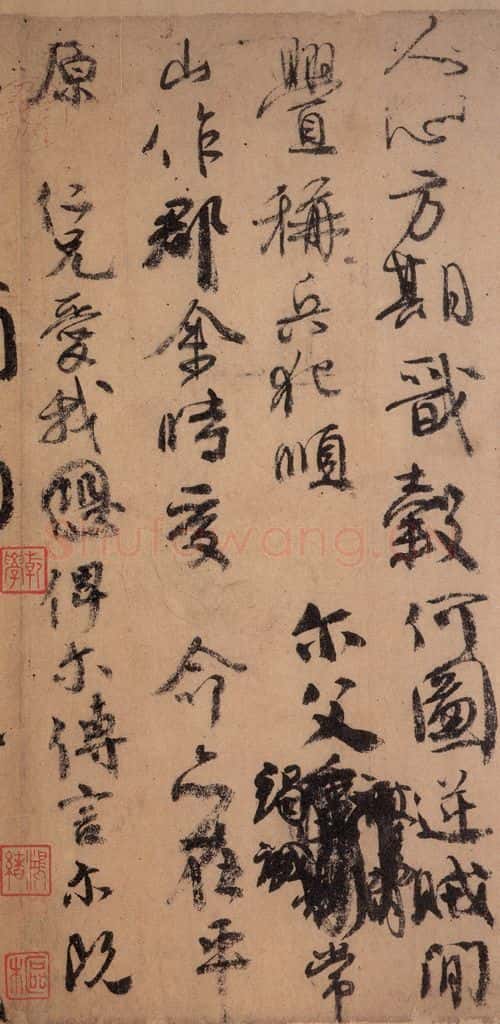 人心方期戩穀何圖逆賊閒
釁稱兵犯順 尔父竭誠常
山作郡余時受 命亦在平
原 仁兄愛我恐俾尔傳言尔既
乾學
shufawang